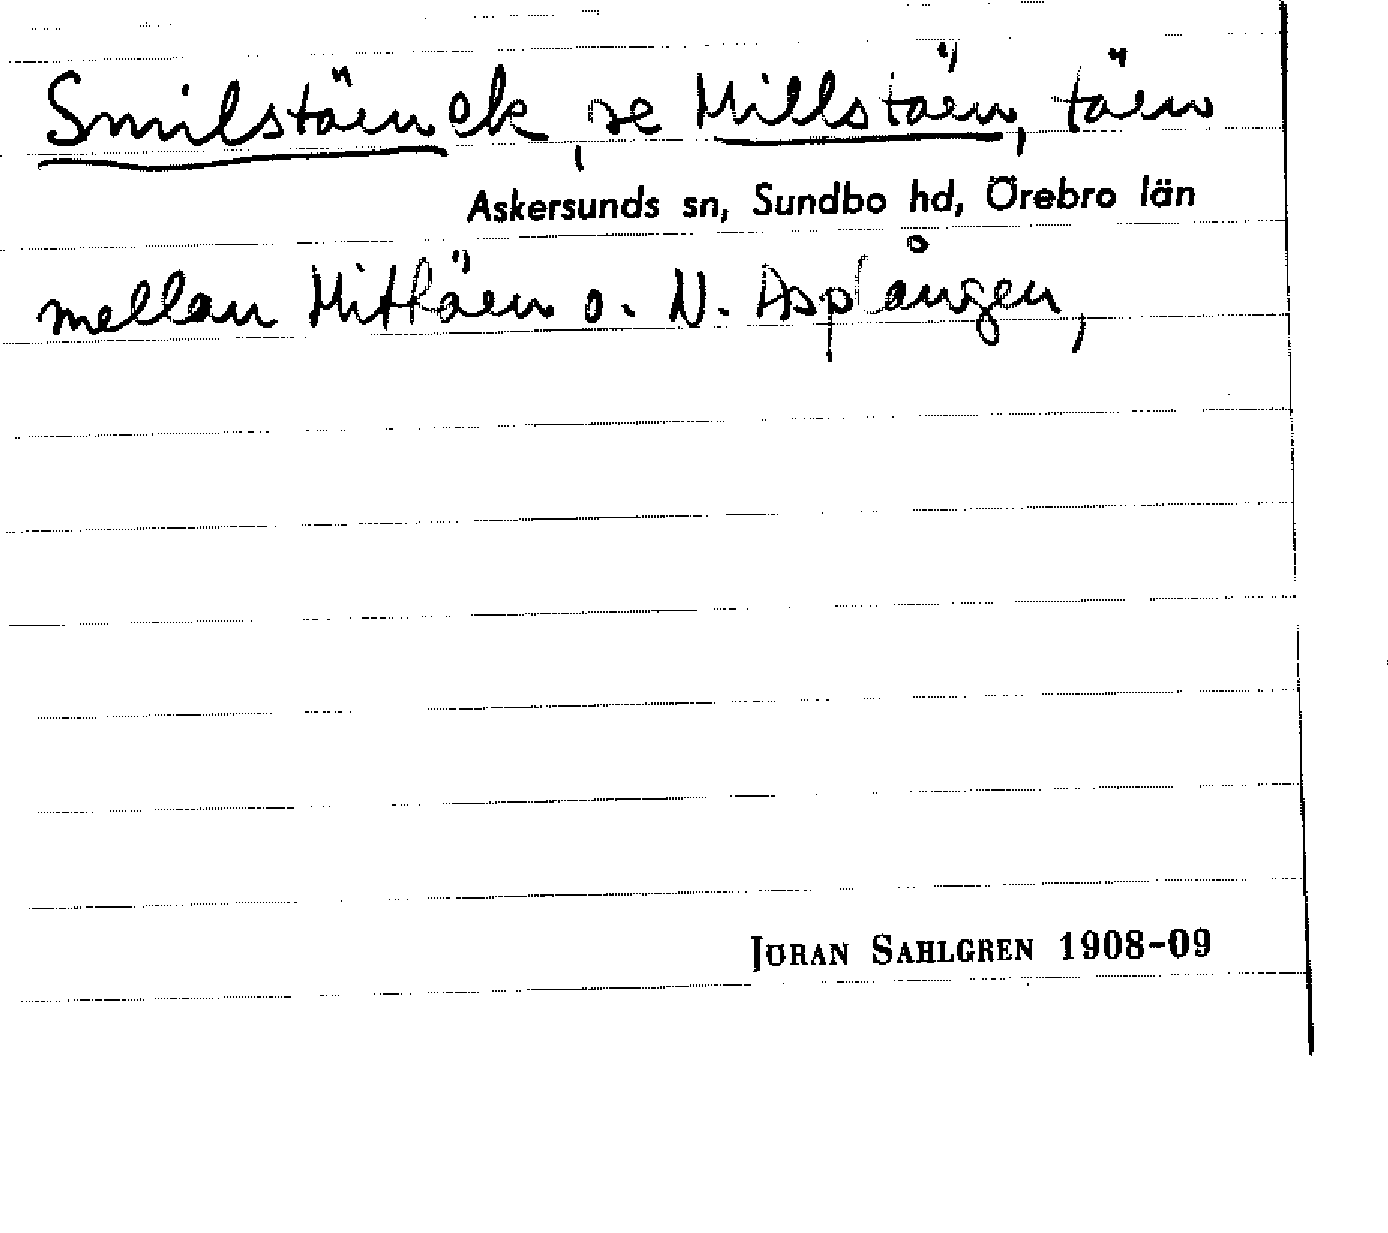 Smilstäen ek, se Millstäen, täen
Askersunds sn, Sundbo hd, Örebro län
mellan Mittäen o. N. Asplången,
JÖRAN SAHLGREN 1908-09